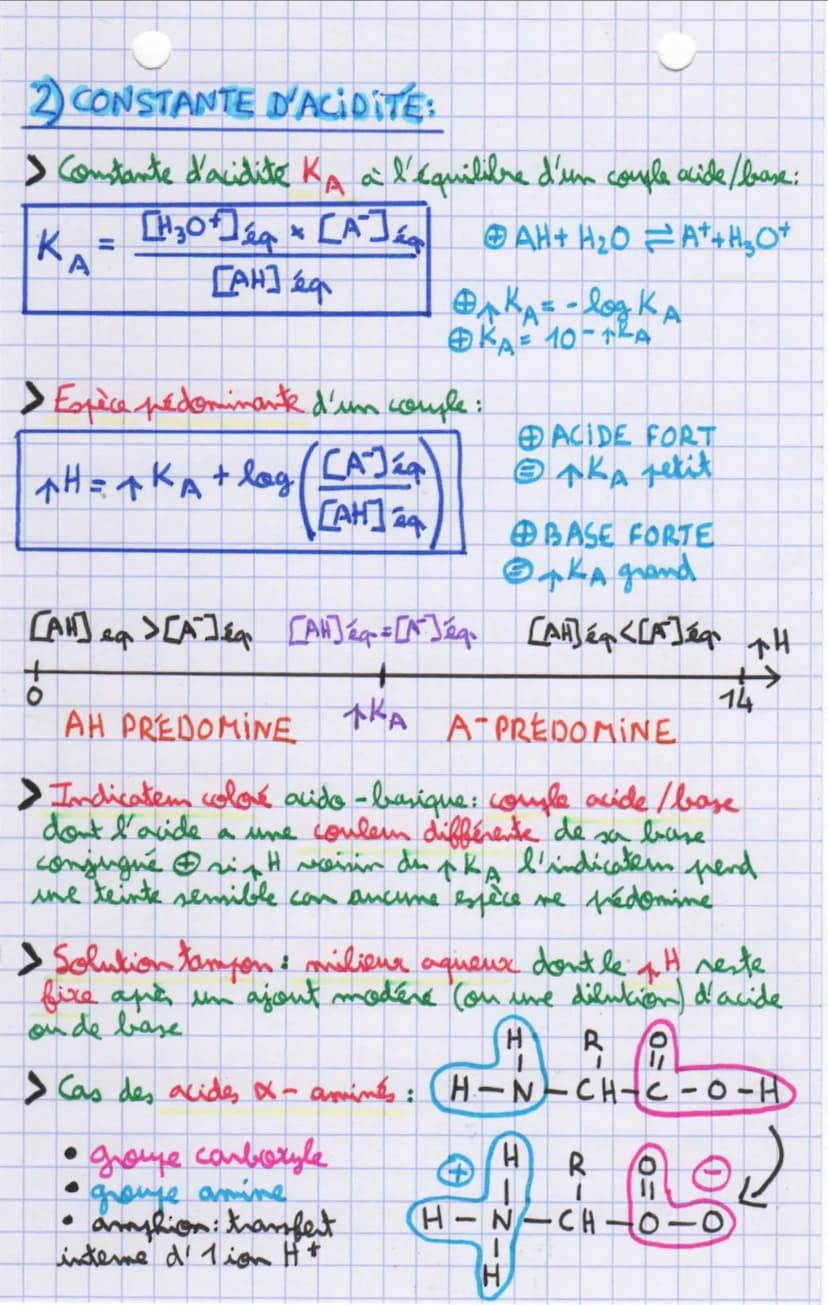 2) CONSTANTE D'ACIDITÉ:
> Constante d'acidité KA à l'équilibre d'un couple acide/base:
KA = [H3O+]éq × [A-]éq / [AH]éq
⊕ AH + H2O ⇌ A+ + H3O+
⊕ pKA = - log KA
⊕ KA = 10 - pKA
> Espèce pédominante d'un couple :
pH = pKA + log ([A-]éq / [AH]éq)
⊕ ACIDE FORT
⊜ pKA petit
⊕ BASE FORTE
⊜ pKA grand
[AH]eq > [A-]éq [AH]éq = [A-]éq [AH]éq < [A-]éq pH
0 pKA 14
AH PRÉDOMINE A- PRÉDOMINE
> Indicateur coloré acido-basique: couple acide/base
dont l'acide a une couleur différente de sa base
conjugué ⊕ si pH voisin du pKA l'indicateur prend
une teinte sensible car aucune espèce ne pédomine
> Solution tampon : milieux aqueux dont le pH reste
fixe après un ajout modéré (ou une dilution) d'acide
ou de base
> Cas des acides α-aminés :
H R O
H - N - CH - C - O - H
• groupe carboxyle
• groupe amine
• amphion : transfert
interne d'1 ion H+
+ H R O -
H - N - CH - O - O
H